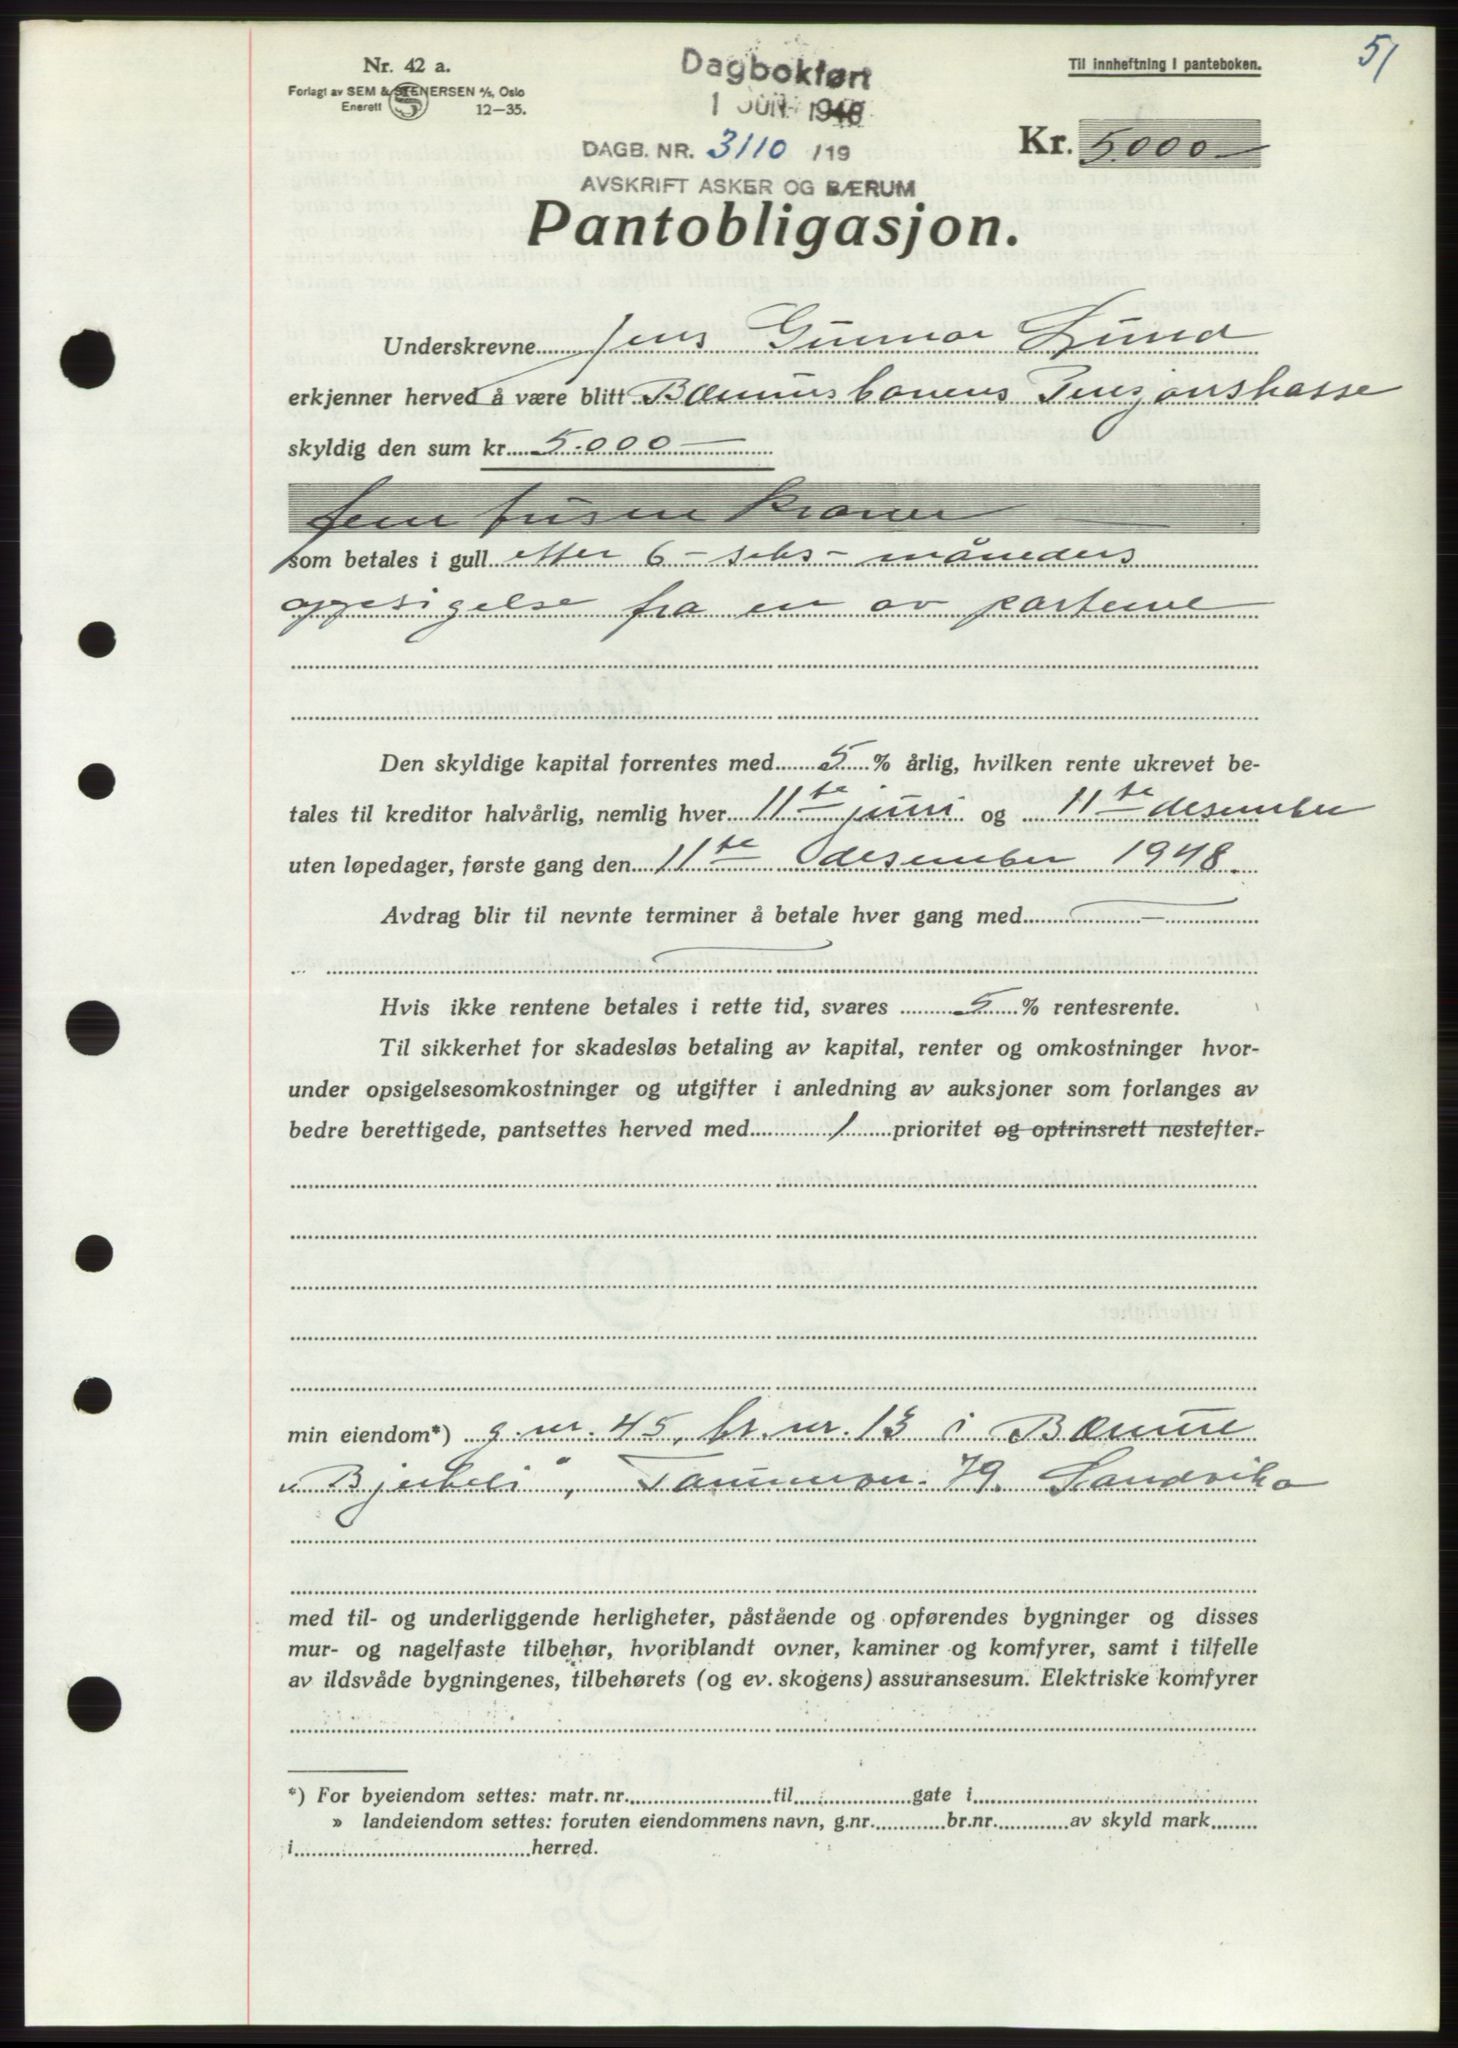 51
Nr. 42 a.
Forlagt av SEM & STENERSEN A/S, Oslo
Enerett 12—35.
Dagbokført
1 JUN 1948
DAGB. NR. 3110 /19
AVSKRIFT ASKER OG BÆRUM
Til innheftning i panteboken.
Kr. 5.000 —
Pantobligasjon.
Underskrevne Jens Gunnar Lund
erkjenner herved å være blitt Bærumsbanens Pensjonskasse
skyldig den sum kr. 5.000 —
fem tusen kroner
som betales i gull etter 6 - seks - måneders
oppsigelse fra en av partene
Den skyldige kapital forrentes med 5 % årlig, hvilken rente ukrevet be-
tales til kreditor halvårlig, nemlig hver 11te juni og 11te desember
uten løpedager, første gang den 11te desember 1948.
Avdrag blir til nevnte terminer å betale hver gang med —
Hvis ikke rentene betales i rette tid, svares 5 % rentesrente.
Til sikkerhet for skadesløs betaling av kapital, renter og omkostninger hvor-
under opsigelsesomkostninger og utgifter i anledning av auksjoner som forlanges av
bedre berettigede, pantsettes herved med 1 prioritet og optrinsrett nestefter.
min eiendom*) g. nr. 45, br. nr. 13 i Bærum
„Bjerkeli", Sandvika
med til- og underliggende herligheter, påstående og opførendes bygninger og disses
mur- og nagelfaste tilbehør, hvoriblandt ovner, kaminer og komfyrer, samt i tilfelle
av ildsvåde bygningenes, tilbehørets (og ev. skogens) assuransesum. Elektriske komfyrer
*) For byeiendom settes: matr. nr. til gate i
» landeiendom settes: foruten eiendommens navn, g.nr. br.nr. av skyld mark
i herred.